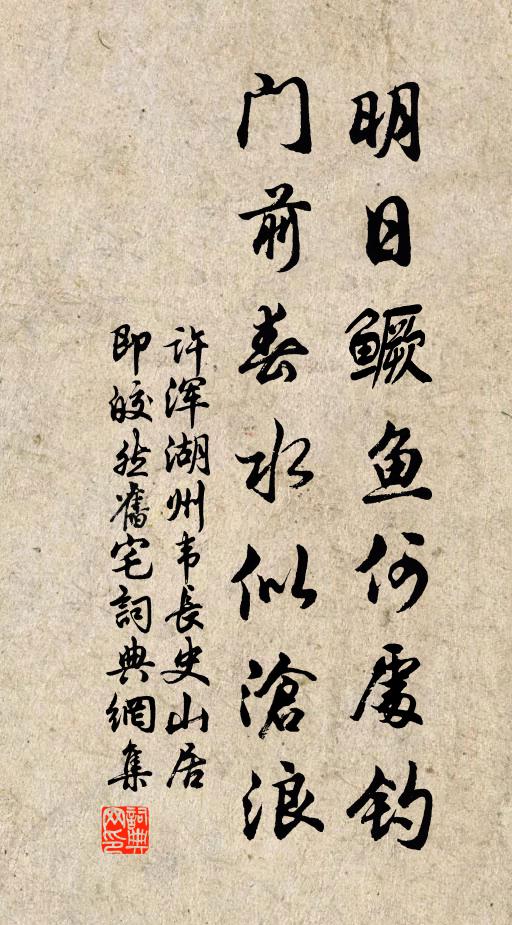 明日鳜鱼何處钓
门前春水似滄浪
许浑湖州韦長史山居
即皎然舊宅詞典網集
詞典
网印